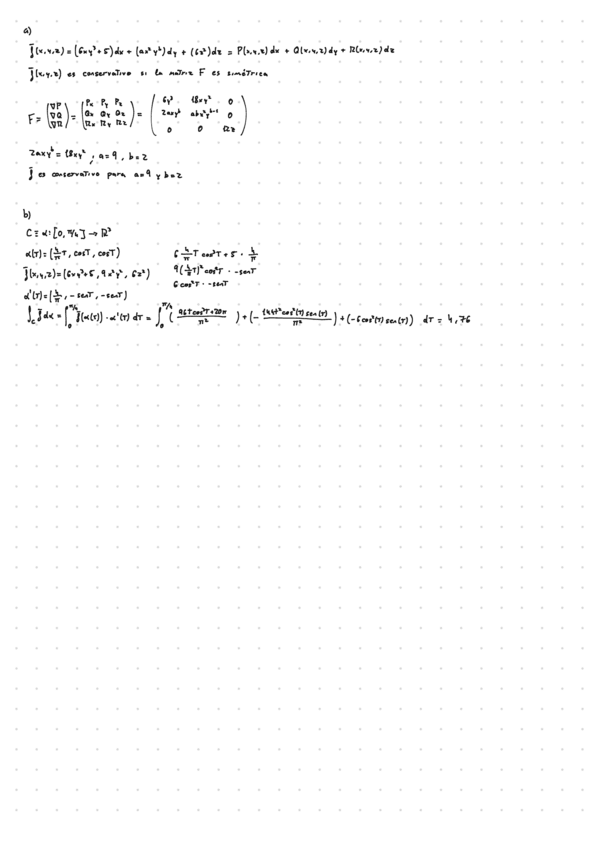 a)
f̄(x,y,z) = (6xy³+5)dx + (ax²y^b)dy + (6z²)dz = P(x,y,z)dx + Q(x,y,z)dy + R(x,y,z)dz
f̄(x,y,z) es conservativo si la matriz F es simétrica
F = (∇P ∇Q ∇R) = (Px Py Pz Qx Qy Qz Rx Ry Rz) = (6y³ 18xy² 0 2axy^b abx²y^(b-1) 0 0 0 12z)
2axy^b = 18xy² ; a=9 , b=2
f̄ es conservativo para a=9 y b=2
b)
C ≡ α: [0, π/4] → ℝ³
α(T) = (4/π T, cosT, cosT) 6 4/π T cos³T + 5 · 4/π
f̄(x,y,z) = (6xy³+5, 9x²y², 6z²) 9(4/π T)² cos²T · -senT
α'(T) = (4/π, -senT, -senT) 6 cos²T · -senT
∫_C f̄ dα = ∫_0^(π/4) f̄(α(T)) · α'(T) dT = ∫_0^(π/4) ((96t cos³T+20π)/π²) + (-(144t² cos²(T) sen(T))/π²) + (-6cos²(T) sen(T)) dT = 4,76